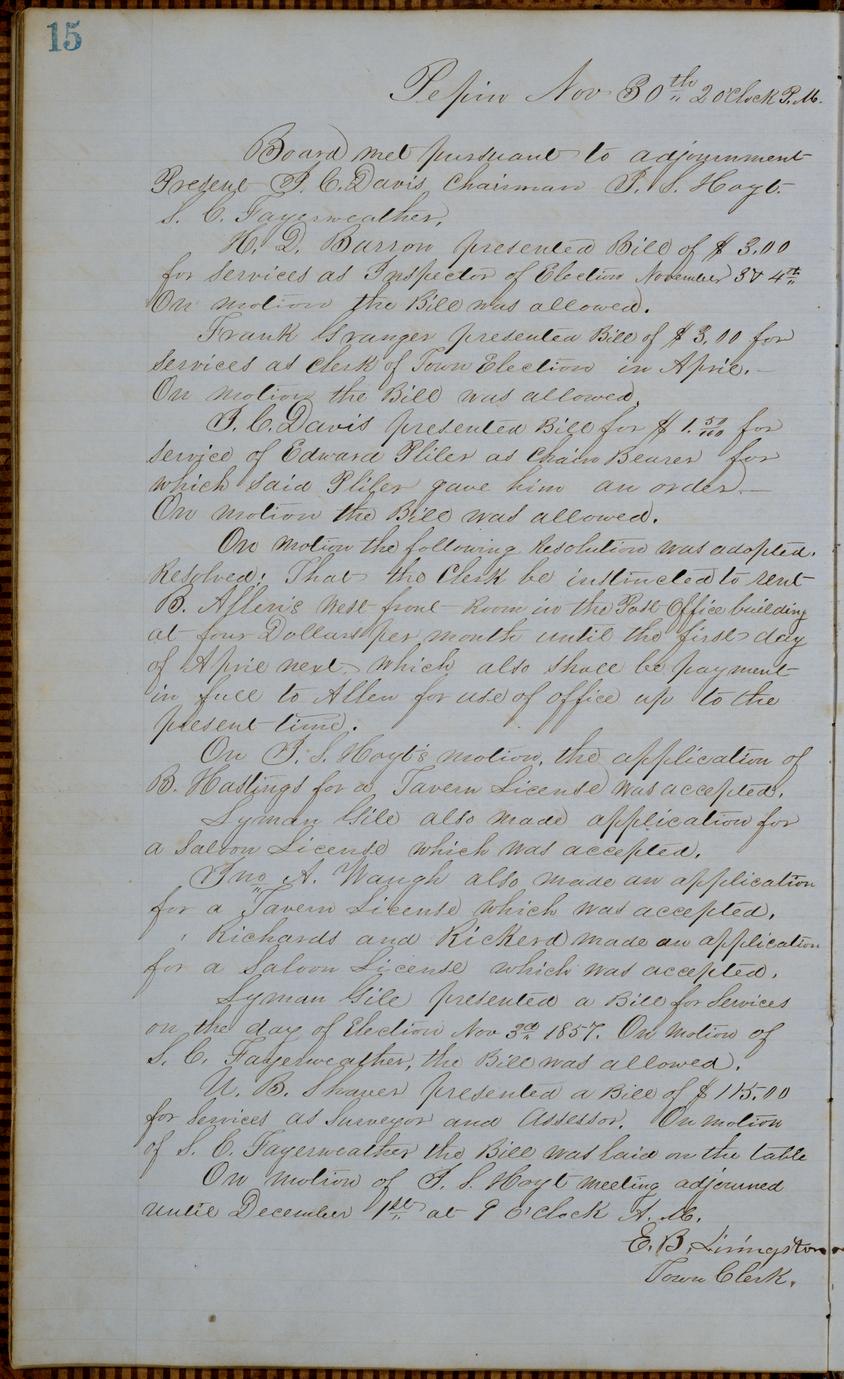 15
Pepin Nov 30th 2 o'clock P.M.
Board met pursuant to adjournment
Present P. C. Davis, Chairman P. S. Hoyt
S. C. Fayerweather,
H. D. Barron presented Bill of $ 3.00
for services as Inspector of Election November 3 & 4th
On motion the Bill was allowed.
Frank Granger presented Bill of $ 3.00 for
services as clerk of Town Election in April.—
On motion the Bill was allowed.
P. C. Davis presented Bill for $ 1.50/100 for
service of Edward Pliler as Chain Bearer for
which said Pliler gave him an order—
On motion the Bill was allowed.
On motion the following Resolution was adopted.
Resolved: That the Clerk be instructed to rent
B. Allen's West front Room in the Post Office building
at four Dollars per month until the first day
of April next, which also shall be payment
in full to Allen for use of office up to the
present time.
On P. S. Hoyt's motion, the application of
B. Hastings for a Tavern License was accepted.
Lyman Gile also made application for
a Saloon License which was accepted.
Jno A. Waugh also made an application
for a Tavern License which was accepted.
Richards and Rickerd made an application
for a Saloon License which was accepted.
Lyman Gile presented a Bill for Services
on the day of Election Nov 3rd 1857. On motion of
S. C. Fayerweather, the Bill was allowed.
U. B. Shaver presented a Bill of $ 115.00
for Services as Surveyor and Assessor. On motion
of S. C. Fayerweather the Bill was laid on the table
On motion of P. S. Hoyt meeting adjourned
until December 1st at 9 o'clock A.M.
E. B. Livingston
Town Clerk.